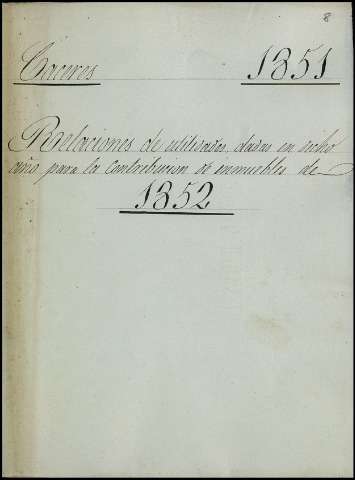 8
Caceres 1851
Relaciones de utilidades, dadas en dicho
año para la Contribucion de inmuebles de
1852